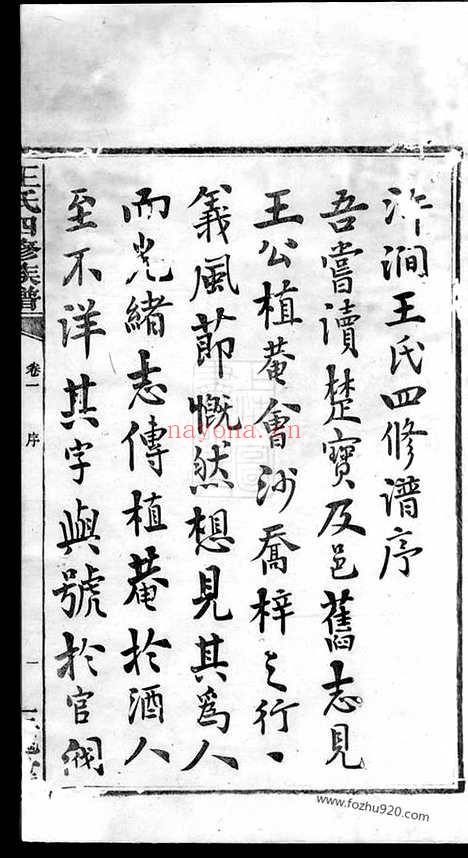 沂澗王氏四修谱序
吾嘗讀楚寶及邑舊志見
王公植菴會沙喬梓之行、
義風莭慨然想見其爲人
而光緒志傳植菴於酒人
至不洋其字與號於官閥
王氏四修族譜
卷一
序
一
nayona.cn
www.fozhu920.com